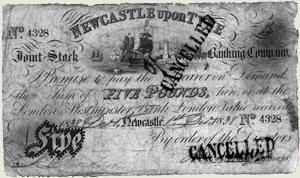 NEWCASTLE upon TYNE
Nº 4328
CANCELLED
Joint Stock Banking Company
I Promise to pay the Bearer on Demand
the Sum of FIVE POUNDS, here or at the
London & Westminster Bank London Value received
1838 Newcastle, 1st Decr 1838 Nº 4328
Five
By order of the Directors
CANCELLED